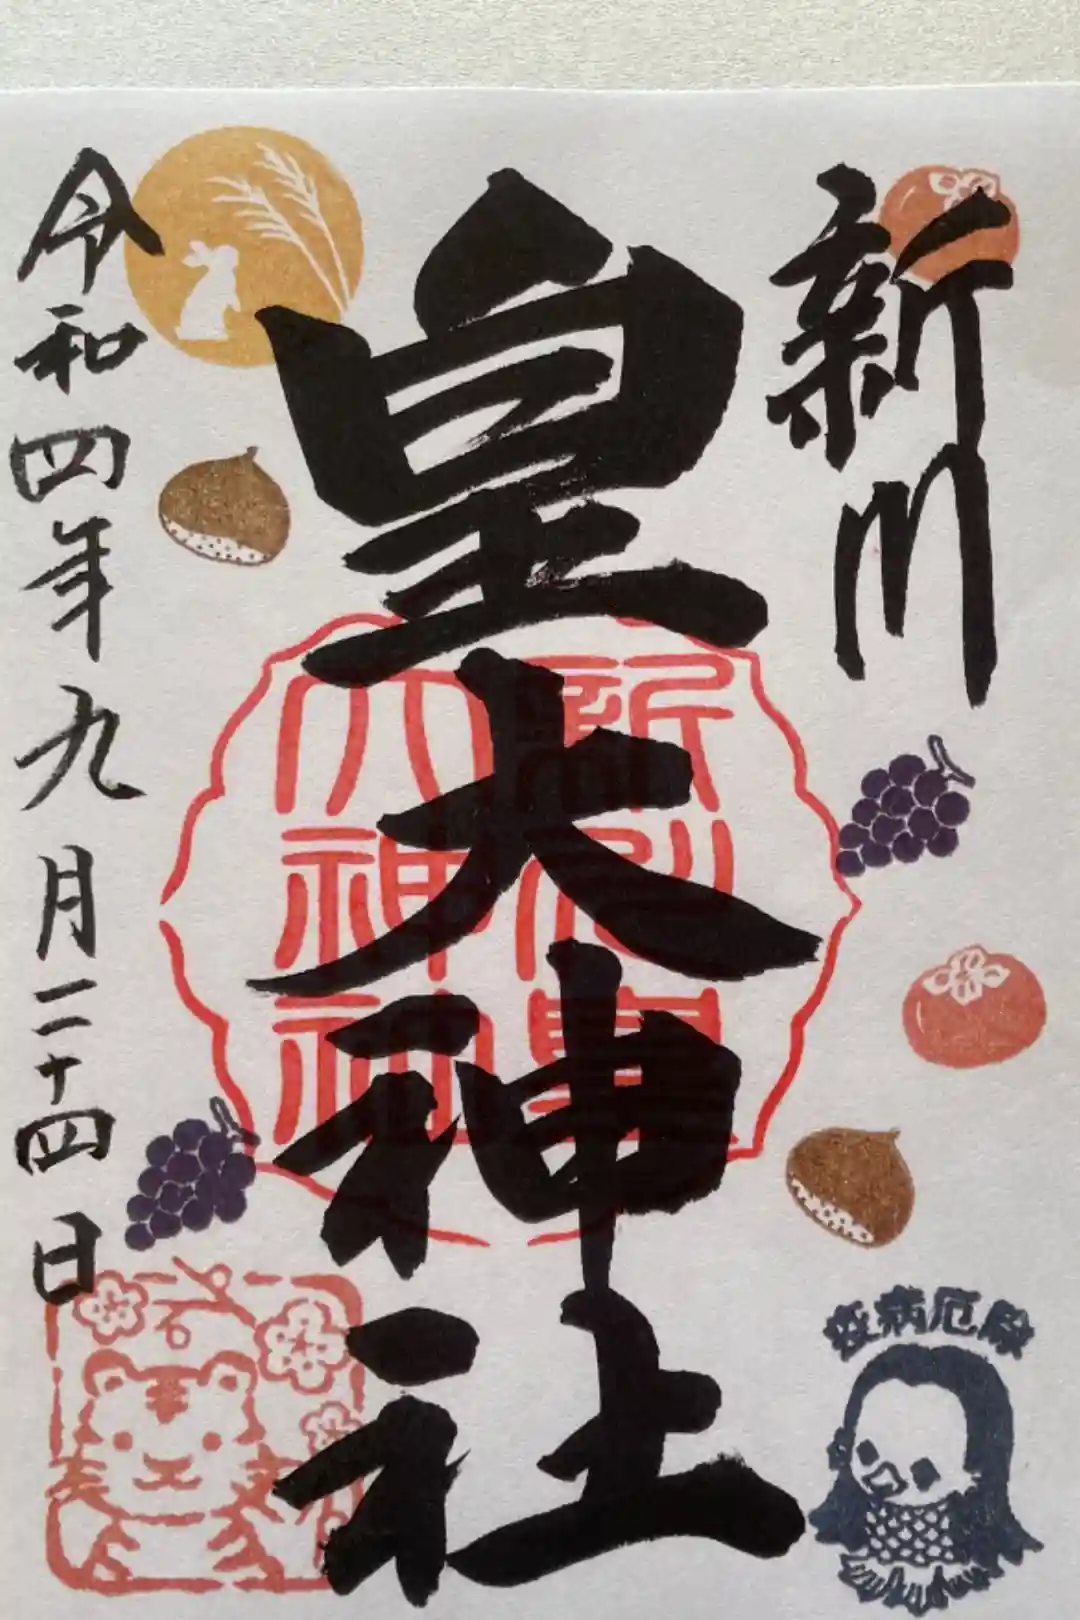 新川
皇大神社
令和四年九月二十四日
新川皇
大神社
疫病厄除